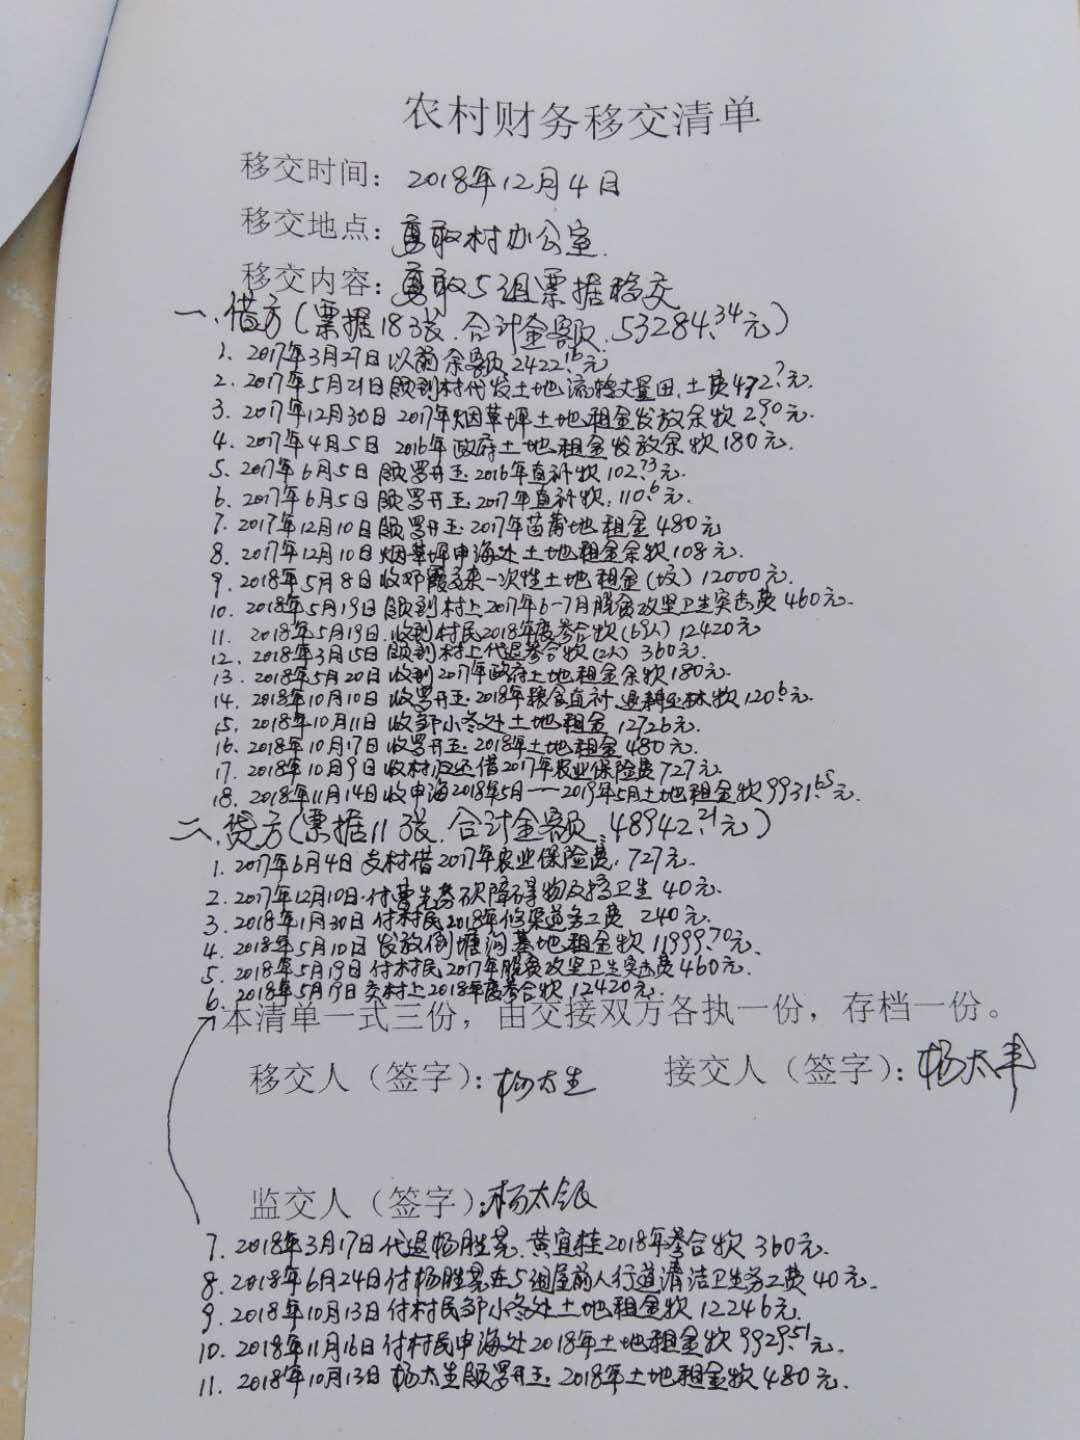 农村财务移交清单
移交时间：2018年12月4日
移交地点：勇敢村办公室.
移交内容：勇敢5组票据移交
一、借方(票据18张.合计金额.53284.34元)
1. 2017年3月27日以前余额2422.16元
2. 2017年5月21日领到村代发土地流转丈量田.土费492.元.
3. 2017年12月30日2017年烟草坪土地租金发放余款2.90元.
4. 2017年4月5日2016年政府土地租金发放余款180元.
5. 2017年6月5日领罗开玉.2016年直补款102.73元.
6. 2017年6月5日领罗开玉.2017年直补款.110.6元.
7. 2017年12月10日领罗开玉.2017年苗莆地租金480元
8. 2017年12月10日烟草坪申海处土地租金余款108元.
9. 2018年5月8日收邓霞交来一次性土地租金(坟)12000元.
10. 2018年5月19日领到村上2017年6-7月脱贫攻坚卫生突击费460元.
11. 2018年5月19日.收到村民2018年度参合款(69人)12420元
12. 2018年3月15日领到村上代退参合款(2人)360元.
13. 2018年5月20日收到2017年政府土地租金余款180元.
14. 2018年10月10日收罗开玉.2018年粮食直补.退耕还林款120.6元.
15. 2018年10月11日收邹小冬处土地租金12726元.
16. 2018年10月17日收罗开玉.2018年土地租金480元.
17. 2018年10月9日收村归还借2017年农业保险费727元.
18. 2018年11月14日收申海2018年5月——2019年5月土地租金款9931.65元.
二、贷方(票据11张.合计金额.48942.21元)
1. 2017年6月4日支村借2017年农业保险费.727元.
2. 2017年12月10日.付曹先芬砍障碍物及搞卫生40元.
3. 2018年1月30日付村民2018年修渠道务工费240元.
4. 2018年5月10日发放倒塘沟基地租金款11999.70元.
5. 2018年5月19日付村民2017年脱贫攻坚卫生突击费460元.
6. 2018年5月19日交村上2018年度参合款12420元.
本清单一式三份，由交接双方各执一份，存档一份。
移交人（签字）：杨太生 接交人（签字）：杨太丰
监交人（签字）：杨太银
7. 2018年3月17日代退杨胜晃.黄宜桂2018年参合款360元.
8. 2018年6月24日付杨胜晃在5组屋前人行道清洁卫生务工费40元.
9. 2018年10月13日付村民邹小冬处土地租金款12246元.
10. 2018年11月16日付村民申海处2018年土地租金款9929.51元.
11. 2018年10月13日杨太生领罗开玉.2018年土地租金款480元.